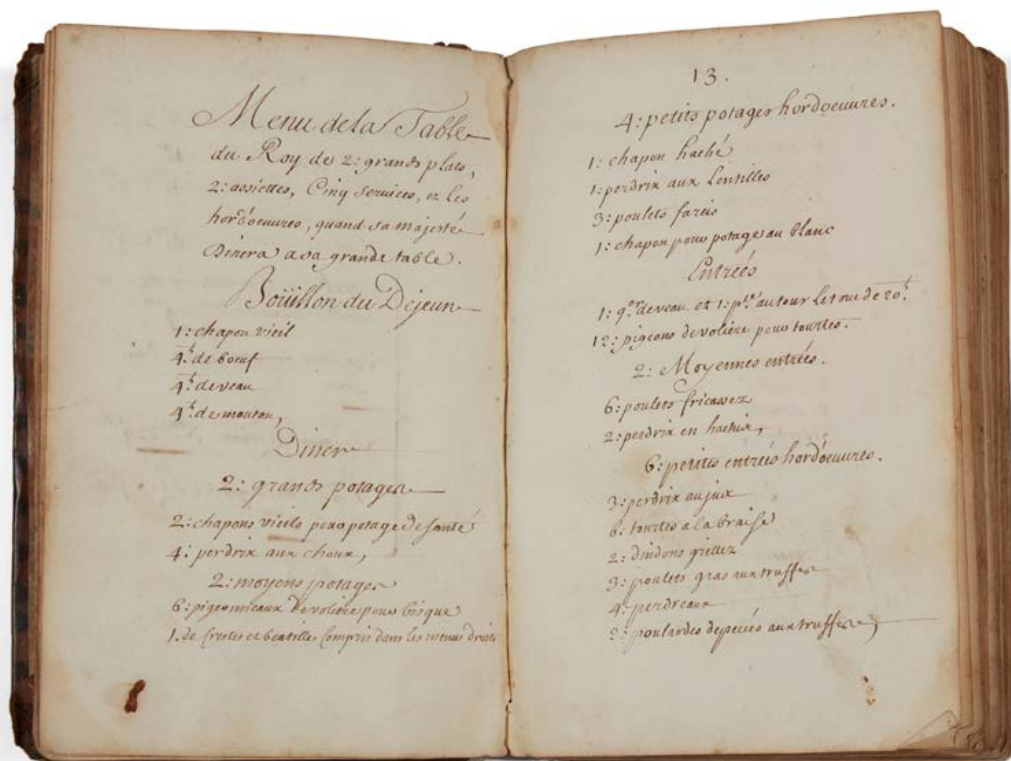 Menu de la Table
du Roy de 2: grands plats,
2: assiettes, Cinq services, et les
hord'oeuures, quand sa majesté
Dinera a sa grande table.
Boüillon du Dejeun
1: chapon vieil
4.t de boeuf
4.t de veau
4.t de mouton,
Diner
2: grands potages
2: chapons vieils pour potage de santé
4: perdrix aux choux,
2: moyens potages
6: pigeonneaux de voliere pour bisque
1. de Crestes et beatilles Compris dans les menus droits
13.
4: petits potages hordoeuures.
1: chapon haché
1: perdrix aux Lentilles
3: poulets farcis
1: chapon pour potage au blanc
Entrées
1: q.er de veau et 1: p.ce autour Le tout de 20.t
12: pigeons de voliere pour tourtes.
2: Moyennes entrées.
6: poulets fricassez
2: perdrix en hachix,
6: petites entrées hord'oeuures.
3: perdrix au jux
6: tourtes a la braise
2: dindons grillez
3: poulets gras aux truffes
4: perdreaux
2: poulardes depecés aux truffes